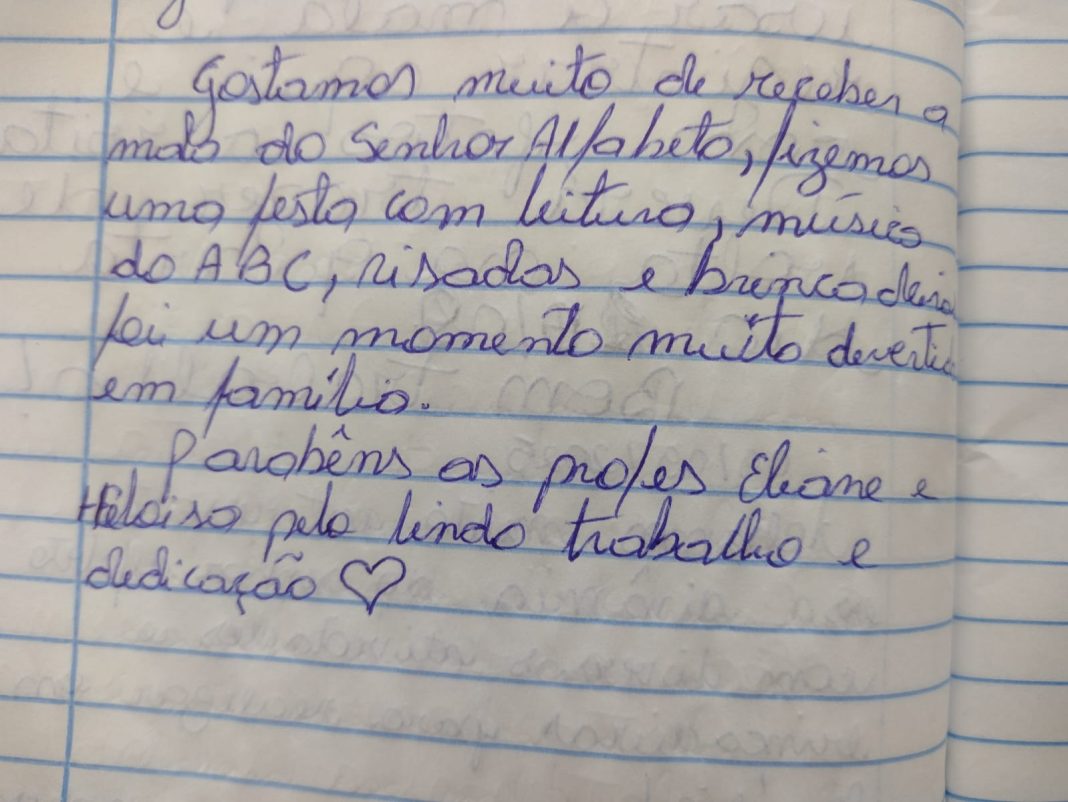 Gostamos muito de receber a
mala do Senhor Alfabeto, fizemos
uma festa com leitura, música
do ABC, risadas e brincadeira
foi um momento muito divertido
em família.
Parabêns as profes Eliane e
Heloisa pelo lindo trabalho e
dedicação ♡